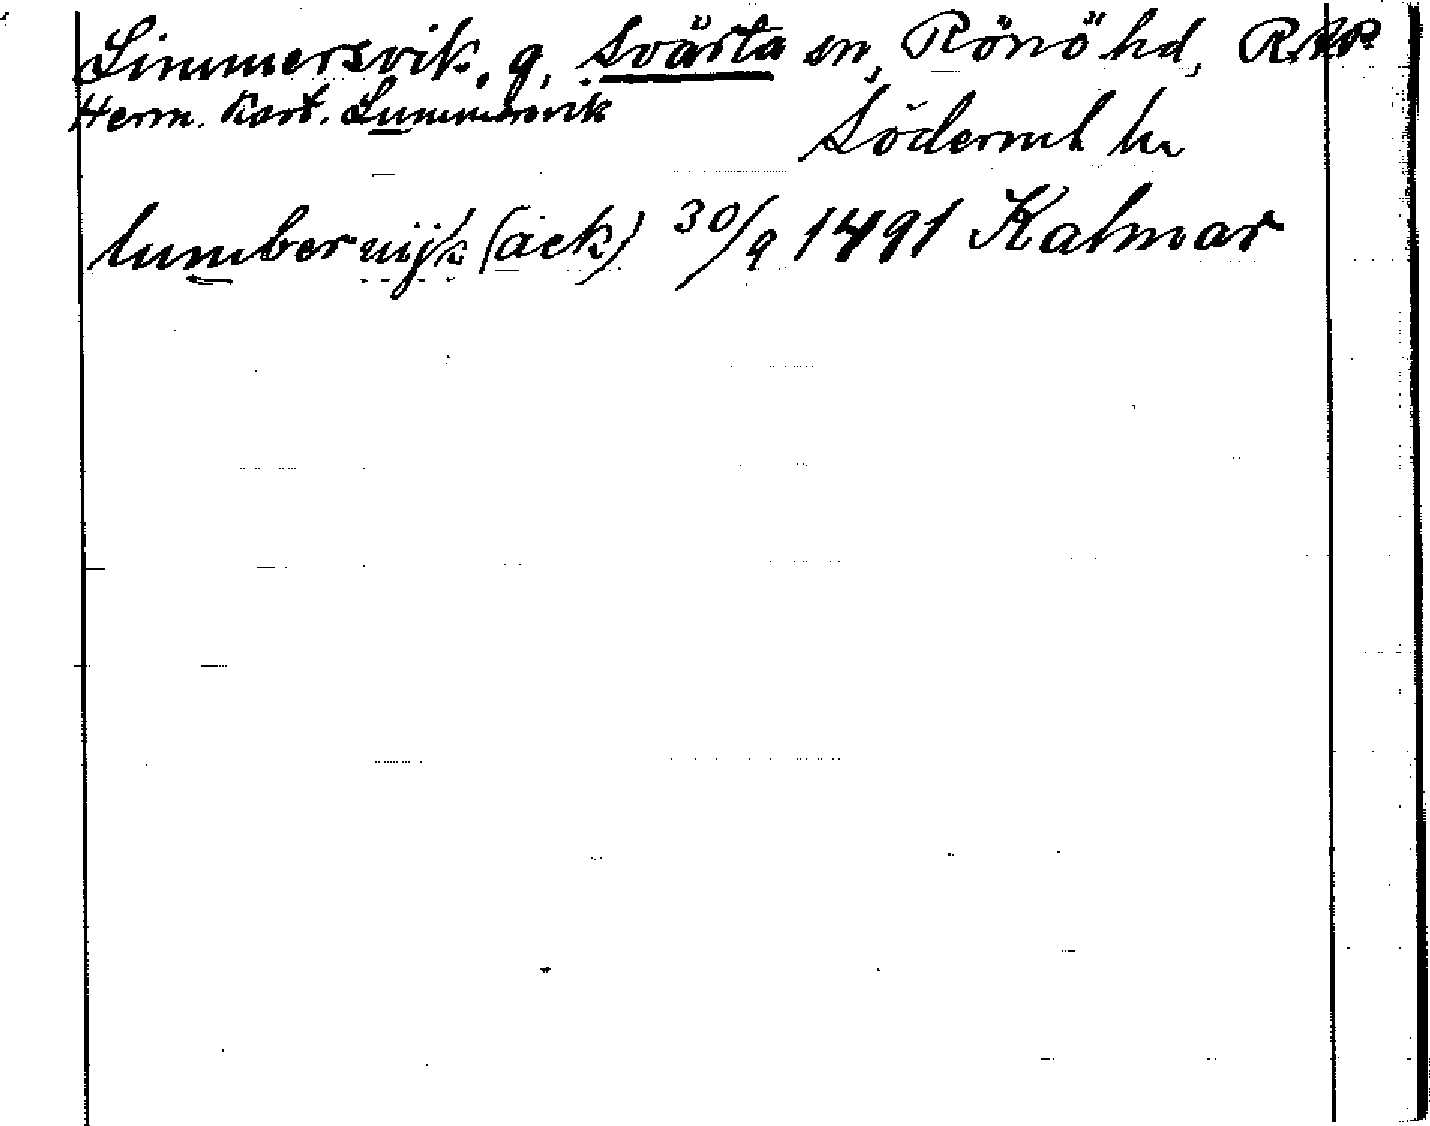 Limmersvik, g, Svärta sn, Rönö hd,
Herm. Kart. Lummersvik
Söderml ln
lumberwijk (ack) 30/9 1491 Kalmar